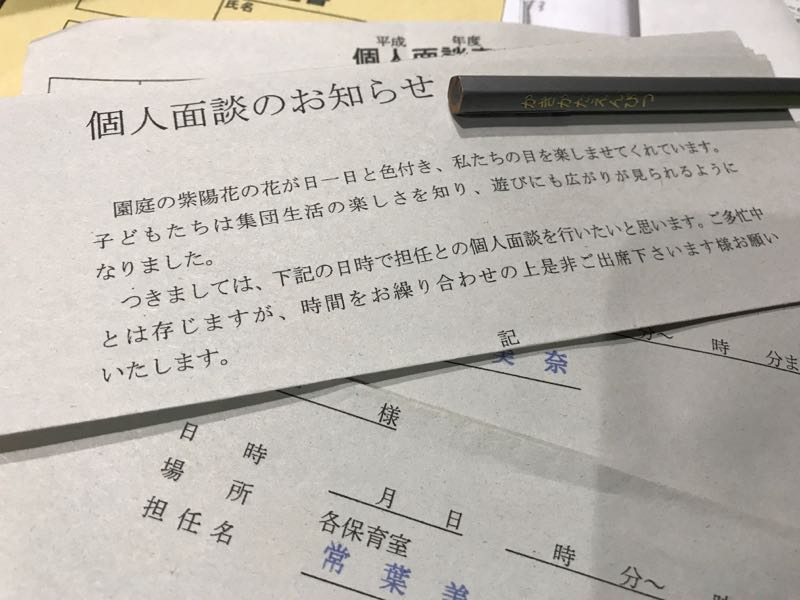 氏名
平成 年度
個人面談
個人面談のお知らせ
かきかたえんぴつ
園庭の紫陽花の花が日一日と色付き、私たちの目を楽しませてくれています。
子どもたちは集団生活の楽しさを知り、遊びにも広がりが見られるように
なりました。
つきましては、下記の日時で担任との個人面談を行いたいと思います。ご多忙中
とは存じますが、時間をお繰り合わせの上是非ご出席下さいます様お願い
いたします。
記
分～ 時 分ま
美 奈
様
日 時
月 日 時 分～ 時
場 所
各保育室
担任名
常 葉 美